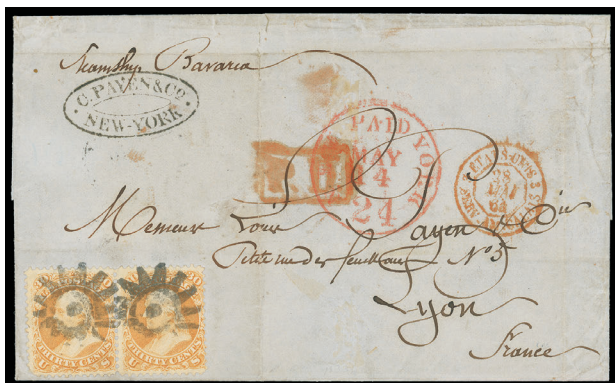 Steamship Bavaria
C. PAYEN & Co.
NEW-YORK
PAID
YORK
MAY
14
24
ETATS-UNIS
28
MAI
Messieurs Louis Payen & Cie
Petite rue des feuillans No 5
Lyon
France
THIRTY CENTS
U S
THIRTY CENTS
U S